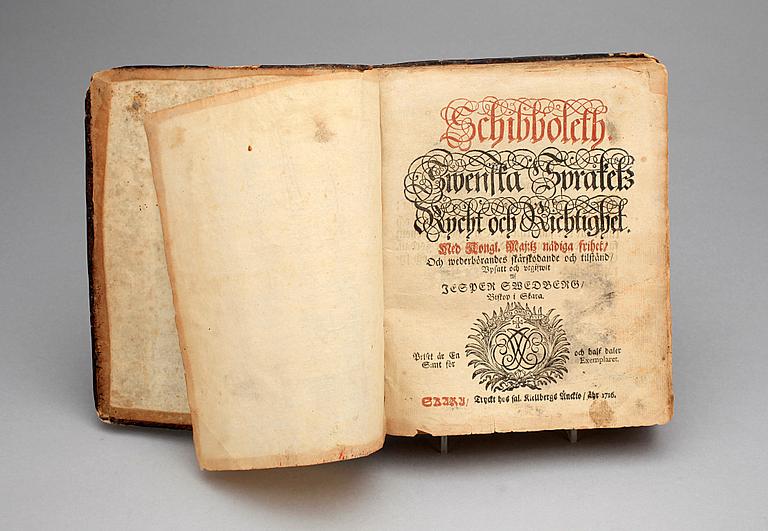 Schibboleth.
Swenska Språketz
Rycht och Richtighet.
Med Kongl. Maj:tz nådiga frihet/
Och wederbörandes skärskodande och tilstånd/
Vpsatt och vtgifwit
Af
JESPER SWEDBERG/
Biskop i Skara.
Priset är En och half daler
S:mt för Exemplaret.
SKARA/ Tryckt hos sal. Kiellbergs Änckio/ Åhr 1716.